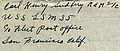 Earl Henry Lindberg RdM 2/c
U S S LSM 35
℅ Fleet Post office
San Francisco Calif.